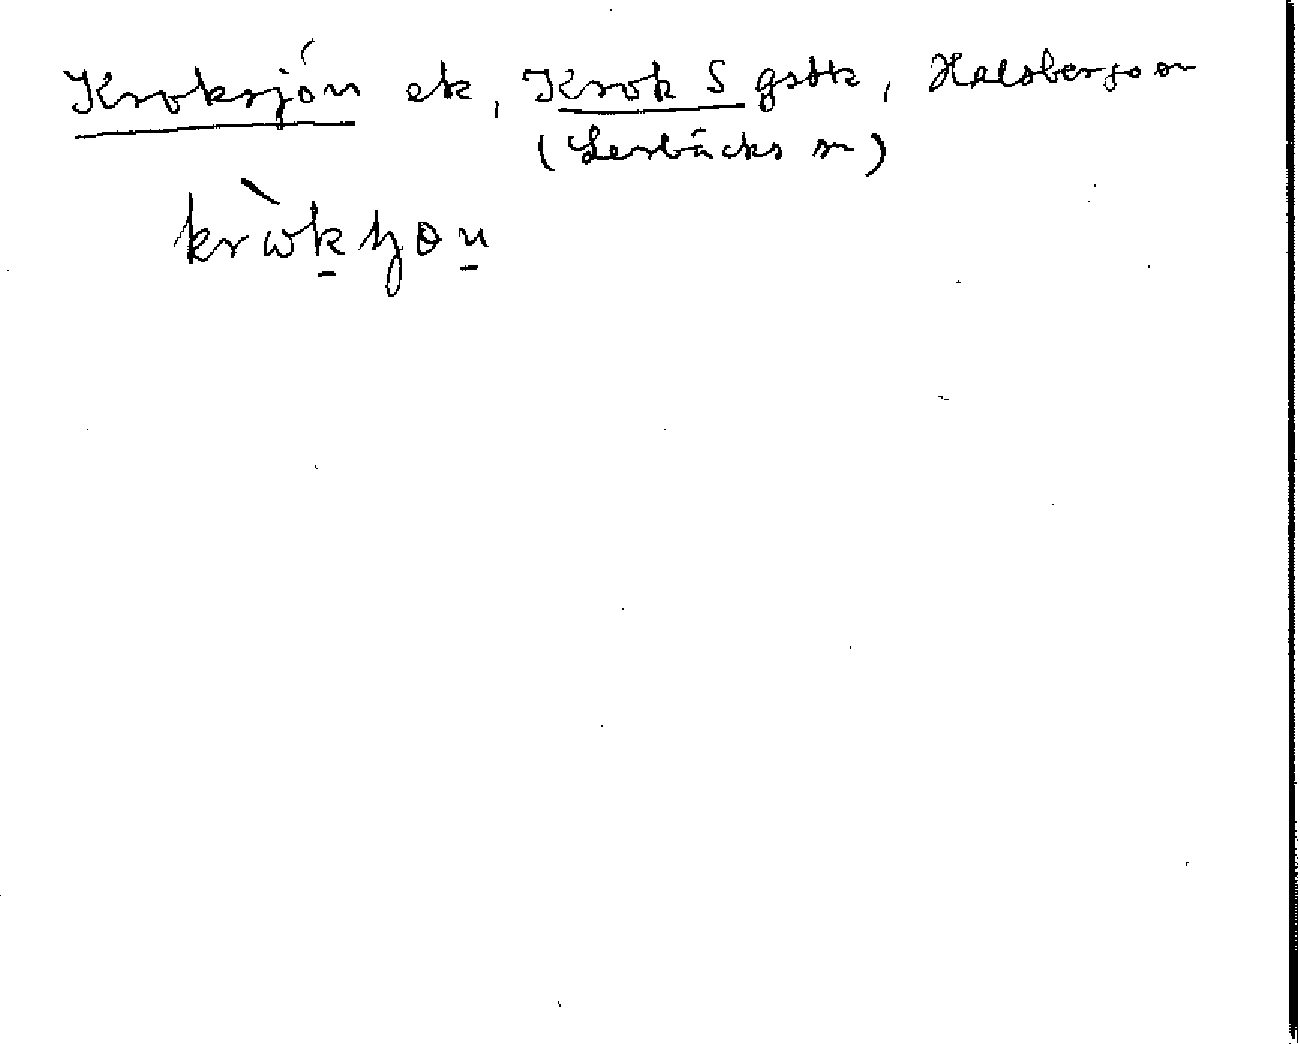 Kroksjön ek, Krok S gstk, Halsbergs sn
(Lerbäcks sn)
kròkʃɵn